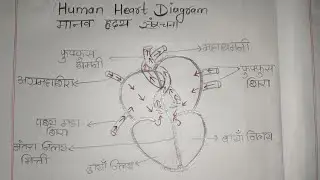 Human Heart Diagram
मानव हृदय संरचना
फुफ्फुस
धमनी
महाधमनी
अग्रमहाशिरा
फुफ्फुस
शिरा
पश्च महा
शिरा
अंतरा निलय
भित्ती
दायाँ निलय
बायाँ निलय